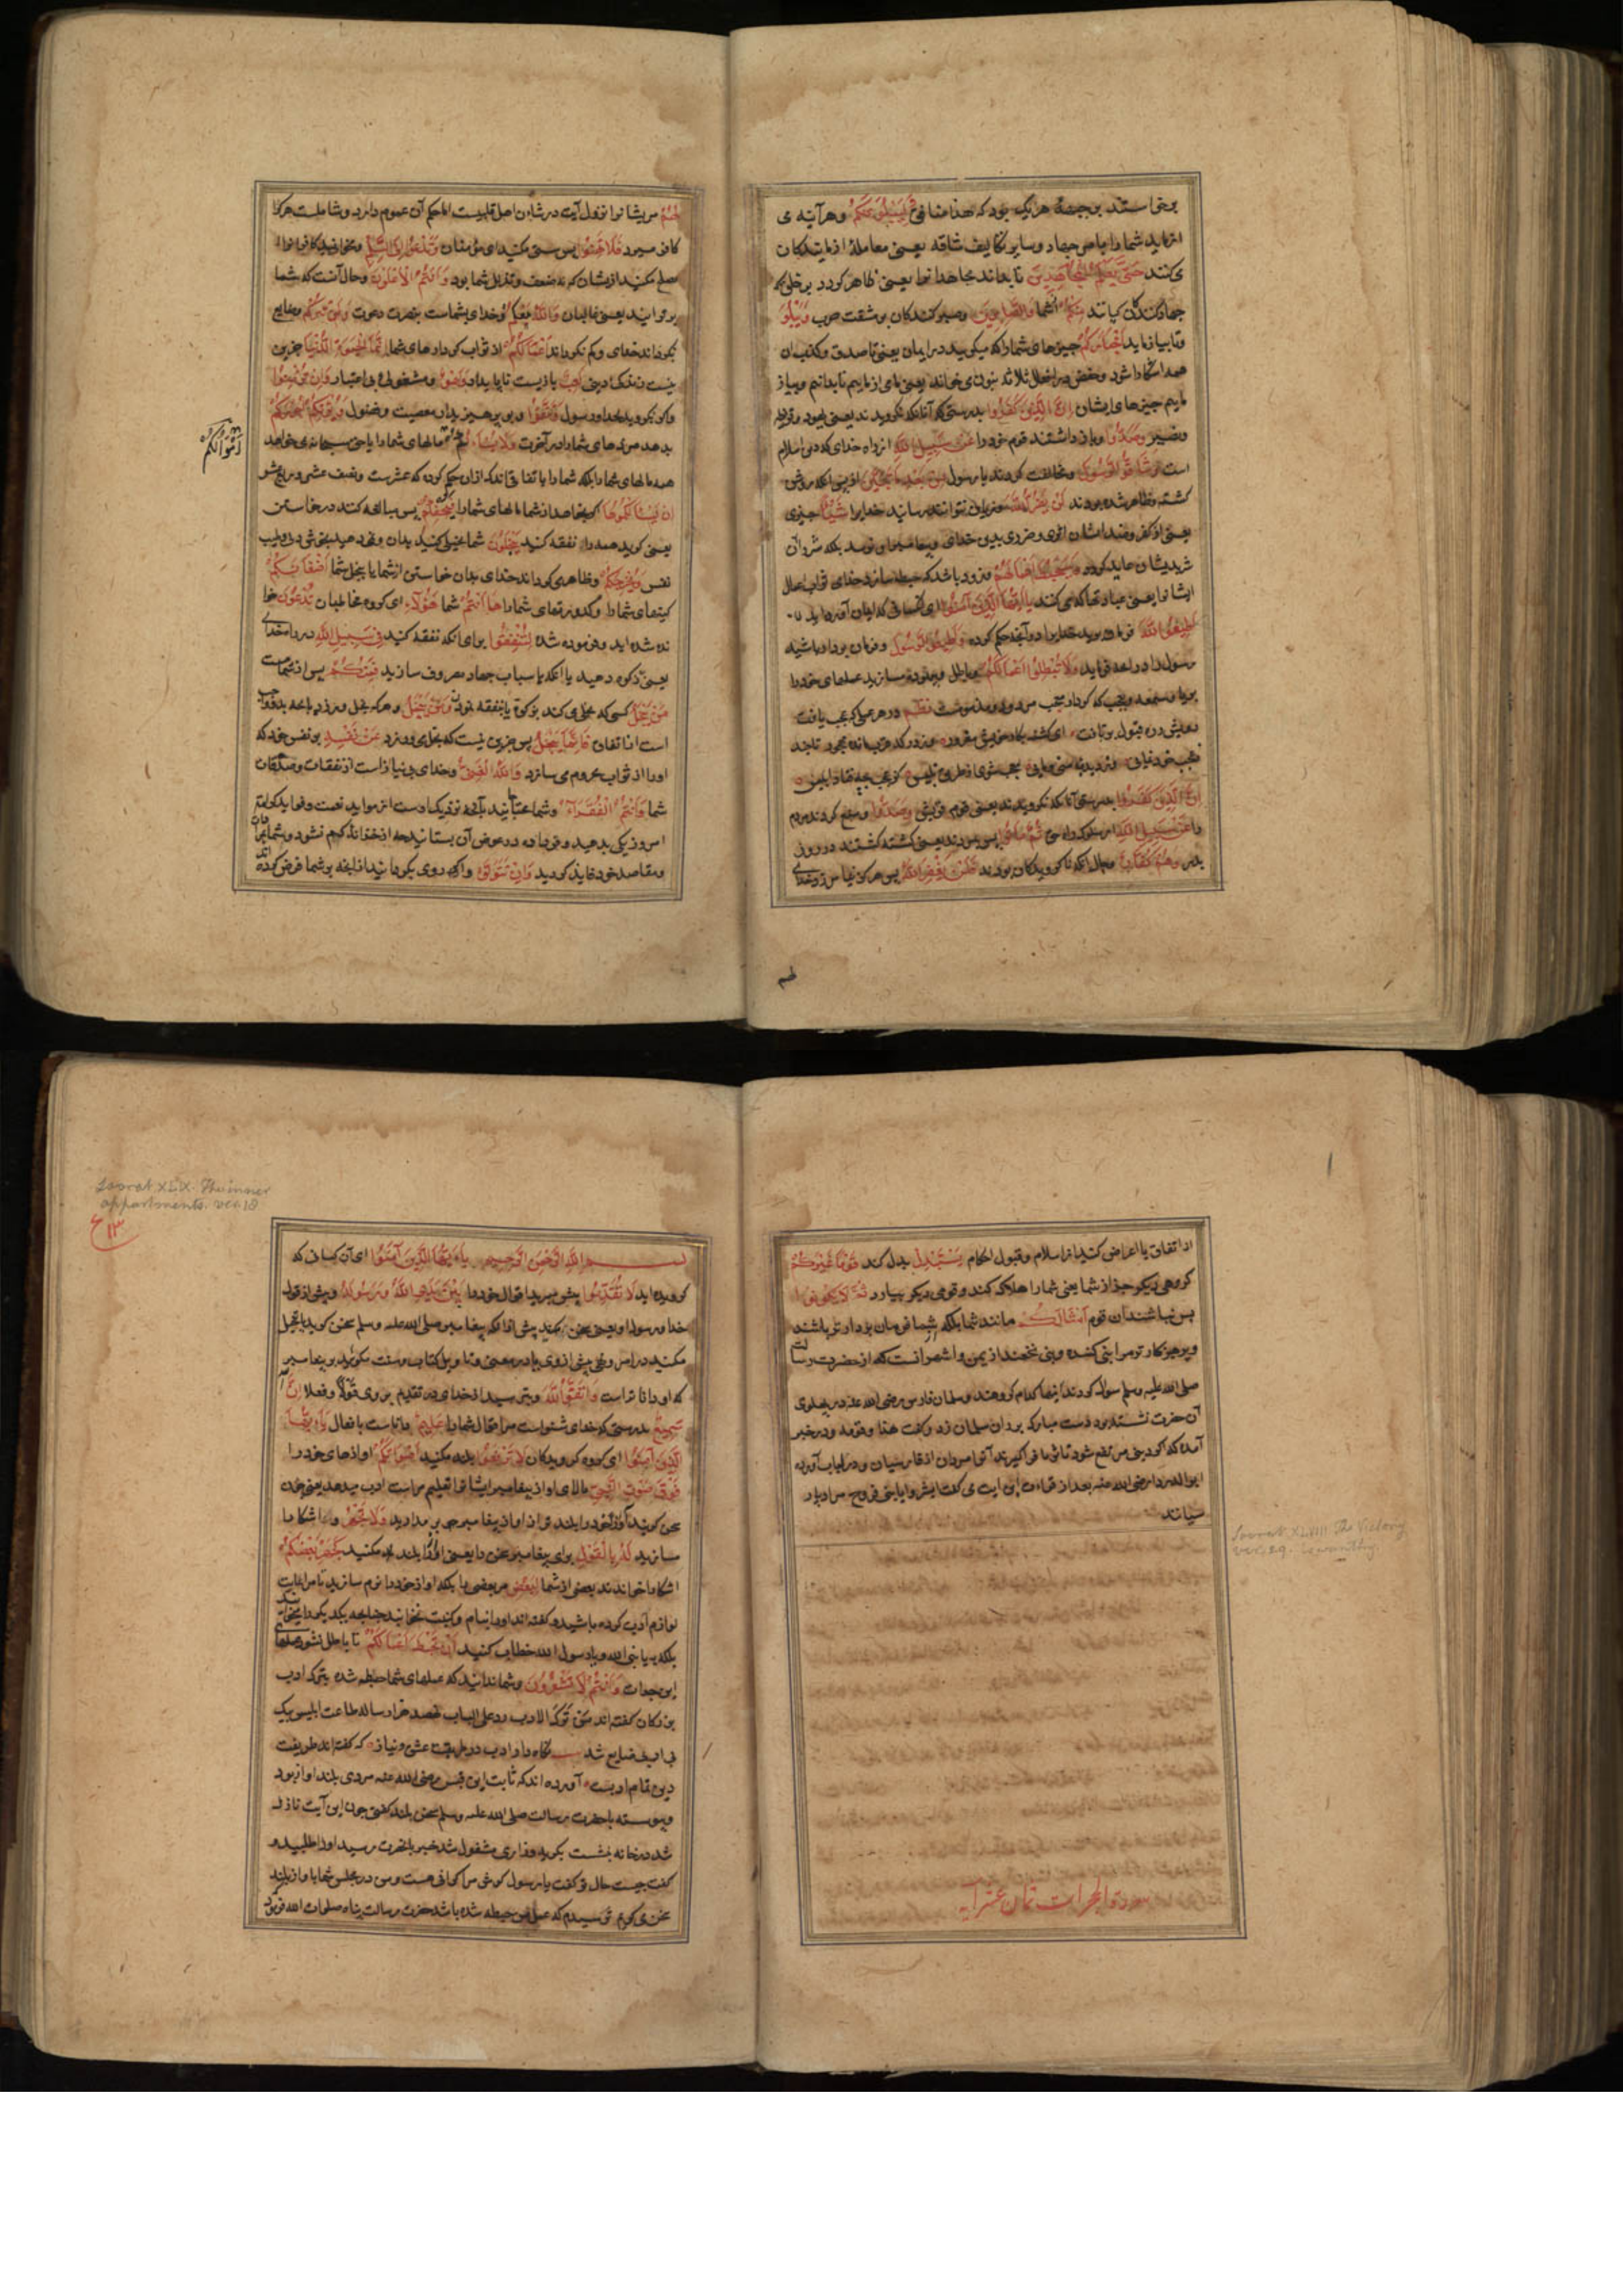 برخاستند بر جبههٔ هر یک بود که هذا منافق لَنَبْلُوَنَّكُمْ وهر آینه می
ازماید شمارا بامر جهاد وسایر تکالیف شاقه یعنی معاملهٔ ازمایندکان
می کنند حَتَّى نَعْلَمَ الْمُجَاهِدِينَ تا بداند مجاهدانرا یعنی ظاهر کردد بر خلق که
جهاد کنندکان کیانند مِنْكُمْ از شما وَالصَّابِرِينَ وصبر کنندکان بر مشقت حرب وَنَبْلُوَ
وتا بیازماید أَخْبَارَكُمْ چیزهای شمارا که میکویید در ایمان یعنی تا صدق وکذب آن
همه اشکارا شود
ماییم چیزهای ایشان إِنَّ الَّذِينَ كَفَرُوا بدرستی که آنانکه نکرویدند یعنی یهود وقریظه
ونضیر وَصَدُّوا وباز داشتند قوم خود را عَنْ سَبِيلِ اللَّهِ از راه خدای که دین اسلام
است وَشَاقُّوا الرَّسُولَ ومخالفت کردند با رسول مِنْ بَعْدِ مَا تَبَيَّنَ از پس انکه روشن
کشته وظاهر شده بود لَنْ يَضُرُّوا اللَّهَ نتوانند رسانید خدایرا شَيْئًا چیزی
یعنی از کفر وصد ایشان اثری وضرری بدین خدای وپیغامبر او نرسد بلکه شر آن
بدیشان عاید کردد وَسَيُحْبِطُ أَعْمَالَهُمْ وزود باشد که حبطه سازد خدای ثواب اعمال
ایشانرا یعنی عباداتها که می کنند يَا أَيُّهَا الَّذِينَ آمَنُوا ای کسانی که ایمان آورده اید
أَطِيعُوا اللَّهَ فرمان برید خدایرا در آنچه حکم کرده وَأَطِيعُوا الرَّسُولَ وفرمان بردار باشید
رسول را در آنچه فرماید وَلَا تُبْطِلُوا أَعْمَالَكُمْ وباطل مسازید عملهای خود را
بریا وسمعه وعجب که کردار معجب مردود ومذموست نظم در هر عملی که عجب یافت
رویش ز ره قبول برتافت ای کشته بکار خویش مغرور
إِنَّ الَّذِينَ كَفَرُوا بدرستی آنانکه نکرویدند یعنی قوم قریش وَصَدُّوا ومنع کردند مردم
را عَنْ سَبِيلِ اللَّهِ از سلوک راه حق ثُمَّ مَاتُوا پس مردند یعنی کشته کشتند در روز
بدر وَهُمْ كُفَّارٌ وحال آنکه ناکرویدکان بودند فَلَنْ يَغْفِرَ اللَّهُ پس هرکز نیامرزد خدای
لَهُمْ مریشانرا نزول آیت در شان اهل قلیبست اما حکم آن عموم دارد وشاملست هر که
کافر میرد فَلَا تَهِنُوا پس سستی مکنید ای مؤمنان وَتَدْعُوا إِلَى السَّلْمِ ومخوانید کافرانرا
صلح مکنید از ایشان که نه ضعف وتذلل شما بود وَأَنْتُمُ الْأَعْلَوْنَ وحال آنست که شما
برترانید یعنی غالبان وَاللَّهُ مَعَكُمْ وخدای بشماست بنصرت ومعونت وَلَنْ يَتِرَكُمْ وضایع
نکرداند خدای وکم نکرداند أَعْمَالَكُمْ از ثواب کردارهای شما إِنَّمَا الْحَيَوةُ الدُّنْيَا جز این
نیست زندکانی این لَعِبٌ بازیست ناپایدار وَلَهْوٌ ومشغولی بی اعتبار وَإِنْ تُؤْمِنُوا
واکر بکروید بخدا ورسول وَتَتَّقُوا وبپرهیزید از معصیت وفضول يُؤْتِكُمْ أُجُورَكُمْ
بدهد مزدهای شمارا در آخرت وَلَا يَسْأَلْكُمْ مالهای شمارا یا حق سبحانه نمی خواهد
أَمْوَالَكُمْ
همه مالهای شمارا بلکه شمارا بانفاق اندک ازان حکم کرده که عشرست ونصف عشر وربع عشر
إِنْ يَسْأَلْكُمُوهَا اکر بخواهد از شما مالهای شمارا فَيُحْفِكُمْ پس مبالغه کند در خواستن
یعنی کوید همه را نفقه کنید تَبْخَلُوا شما بخیلی کنید بدان
نفس وَيُخْرِجْ وظاهر کرداند خدای بدان خواستن از شما یا بخل شما أَضْغَانَكُمْ
کینهای شمارا وکدورتهای شمارا هَا أَنْتُمْ شما هَؤُلَاءِ ای کروه مخاطبان تُدْعَوْنَ خوا
نده شده اید وفرموده شده لِتُنْفِقُوا برای انکه نفقه کنید فِي سَبِيلِ اللَّهِ در راه خدای
یعنی زکوة دهید یا آنکه باسباب جهاد مصروف سازید فَمِنْكُمْ پس از شماست
مَنْ يَبْخَلُ کسی که بخل می کند بزکوة یا بنفقه وَمَنْ يَبْخَلْ وهر که بخل ورزد بانچه بدو واجب
است از انفاق فَإِنَّمَا يَبْخَلُ پس جز این نیست که بخل می ورزد عَنْ نَفْسِهِ بر نفس خود که
اورا از ثواب محروم می سازد وَاللَّهُ الْغَنِيُّ وخدای بی نیازست از نفقات وصدقات
شما وَأَنْتُمُ الْفُقَرَاءُ وشما محتاجانید
امروز یکی بدهید وفردا ده در عوض آن بستانید
ومقاصد خود فایز کردید وَإِنْ تَتَوَلَّوْا واکر روی بکردانید از انچه بر شما فرض کرده
از انفاق یا اعراض کنید از اسلام وقبول احکام يَسْتَبْدِلْ بدل کند قَوْمًا غَيْرَكُمْ
کروهی دیکر جز از شما یعنی شمارا هلاک کند وقومی دیکر بیارد ثُمَّ لَا يَكُونُوا
پس نباشند ان قوم أَمْثَالَكُمْ مانند شما بلکه از شما فرمان بردارتر باشند
صلی الله علیه وسلم سوال کردند اینها کدام کروهند وسلمان فارسی رضی الله عنه در پهلوی
آن حضرت نشسته بود دست مبارک بر ران سلمان زد وکفت هذا وقومه ودر خبر
آمده که اکر دین مرتفع شود تا ثریا فرا کیرند آنرا مردان از فارسیان ودر لباب آورده
ابو الدردا رضی الله عنه بعد از قراءت این ایت می کفت ابشروا یا بنی فروخ مراد پار
سیانند
Soorat XLVIII The Victory
ver. 29.
سورة الحجرات ثمان عشر آیه
Soorat XLIX. The inner
appartments. ver. 18
ع ١٣
بسم الله الرحمن الرحیم يَا أَيُّهَا الَّذِينَ آمَنُوا ای آن کسانی که
کرویده اید لَا تُقَدِّمُوا پیش مبرید اقوال خود را بَيْنَ يَدَيِ اللَّهِ وَرَسُولِهِ وپیش از قول
خدا ورسول او یعنی سخن مکنید پیش از انکه پیغامبر صلی الله علیه وسلم سخن کوید
که او داناتراست وَاتَّقُوا اللَّهَ وبترسید از خدای در تقدیم بر وی قولاً وفعلاً إِنَّ اللَّهَ
سَمِيعٌ بدرستی که خدای شنواست مر اقوال شمارا عَلِيمٌ داناست بافعال يَا أَيُّهَا
الَّذِينَ آمَنُوا ای کروه کرویدکان لَا تَرْفَعُوا بلند مکنید أَصْوَاتَكُمْ اوازهای خود را
فَوْقَ صَوْتِ النَّبِيِّ بالای اواز پیغامبر ایشانرا تعلیم مراسم ادب میدهد یعنی چون
سخن کویید آواز خود را بلندتر از اواز پیغامبر من بر مدارید وَلَا تَجْهَرُوا واشکارا
مسازید لَهُ بِالْقَوْلِ برای پیغامبر سخن را یعنی اواز بلند مکنید كَجَهْرِ بَعْضِكُمْ
اشکارا خواندن بعضی از شما لِبَعْضٍ مر بعضی را بلکه اواز خود را نرم سازید تا مراعات
لوازم ادب کرده باشید وکفته اند اورا بنام وکنیت نخوانید چنانچه یکدیکر را
بلکه به یا نبی الله ویا رسول الله خطاب کنید أَنْ تَحْبَطَ أَعْمَالُكُمْ تا باطل نشود عملها
این جرات وَأَنْتُمْ لَا تَشْعُرُونَ وشما ندانید که عملهای شما حبطه شده بترک ادب
بزرکان کفته اند من ترک الادب رد علی الباب نهصد هزار ساله طاعت ابلیس بیک
بی ادبی ضایع شد نکاه دار ادب در طریق عشق ونیاز که کفته اند طریقت
دین تمام ادبست آورده اند که ثابت ابن قیس رضی الله عنه مردی بلند اواز بود
وپیوسته با حضرت رسالت صلی الله علیه وسلم سخن بلند کفتی چون این آیت نازل
شد در خانه بنشست بکریه وزاری مشغول شد خبر بانحضرت رسید اورا طلبید و
کفت چیست حال تو کفت یا رسول کوش مرا کرانی هست ومن در مجلس شما باواز بلند
سخن می کویم ترسیدم که عمل من حبطه شده باشد حضرت رسالت پناه صلوات الله فرمود